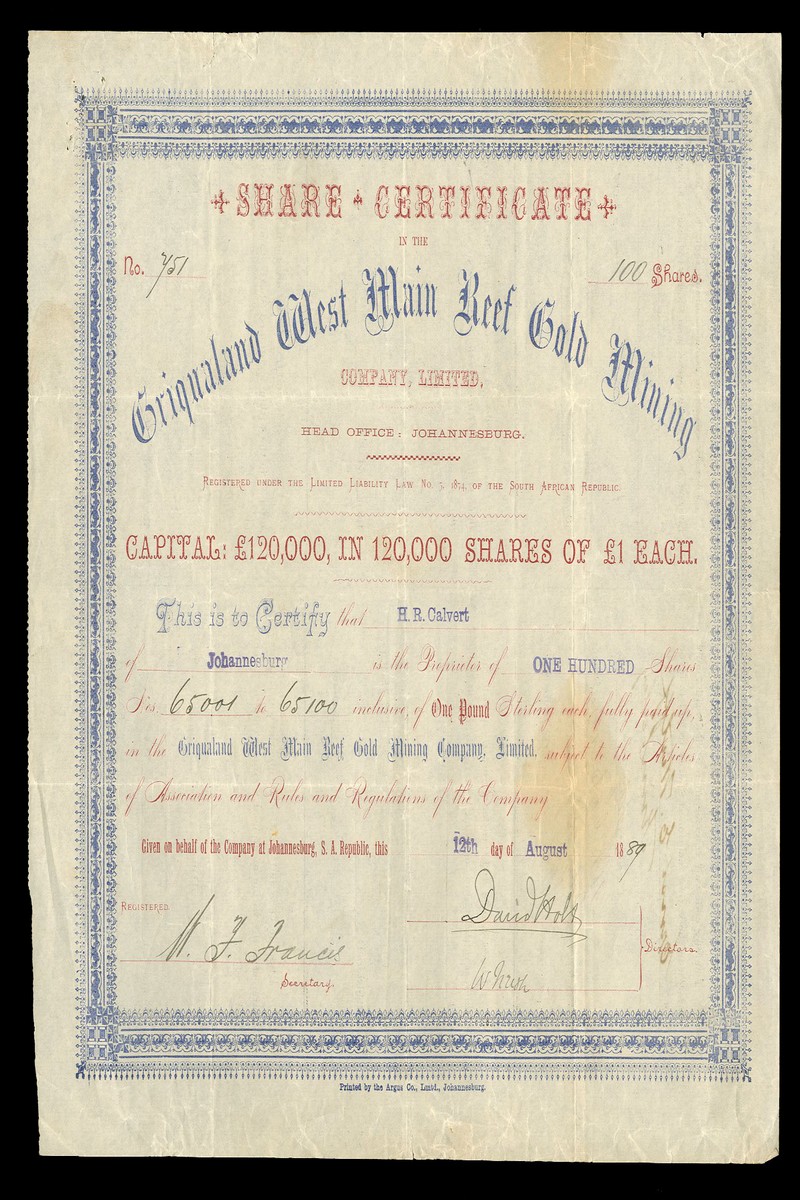 SHARE CERTIFICATE
IN THE
No. 751
100 Shares.
Griqualand West Main Reef Gold Mining
COMPANY, LIMITED,
HEAD OFFICE: JOHANNESBURG.
REGISTERED UNDER THE LIMITED LIABILITY LAW No. 5, 1874, OF THE SOUTH AFRICAN REPUBLIC.
CAPITAL: £120,000, IN 120,000 SHARES OF £1 EACH.
This is to Certify that H. R. Calvert
of Johannesburg is the Proprietor of ONE HUNDRED Shares
Nos. 65001 to 65100 inclusive, of One Pound Sterling each, fully paid up,
in the Griqualand West Main Reef Gold Mining Company, Limited, subject to the Articles
of Association and Rules and Regulations of the Company
Given on behalf of the Company at Johannesburg, S. A. Republic, this 12th day of August 1889
REGISTERED
David Holt
W. F. Francis
Directors.
Secretary.
Printed by the Argus Co., Lmtd., Johannesburg.